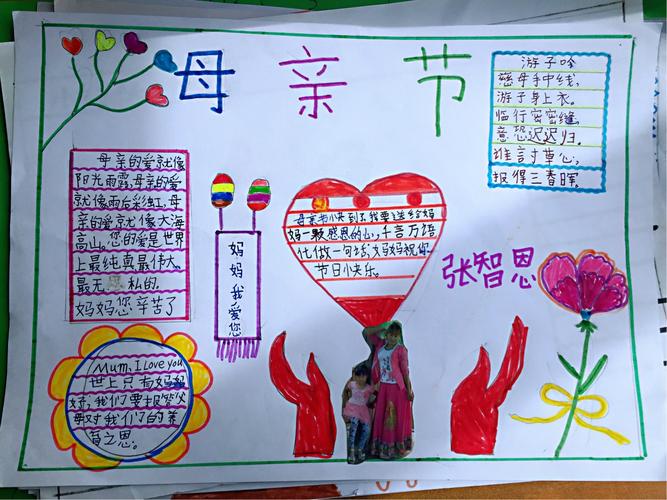 母亲节
游子吟
慈母手中线,
游子身上衣。
临行密密缝,
意恐迟迟归。
谁言寸草心,
报得三春晖。
母亲的爱就像
阳光雨露,母亲的爱
就像雨后彩虹,母
亲的爱就像大海
高山。您的爱是世界
上最纯真最伟大,
最无 私的,
妈妈您辛苦了
妈妈我爱您
母亲节 到了我要送给妈
妈一颗感恩的心,千言万语
化做一句话,妈妈祝您
节日快乐。
张智恩
Mum, I Love you
世上只有妈妈
好,我们要报答父
母对我们的养
育之恩。